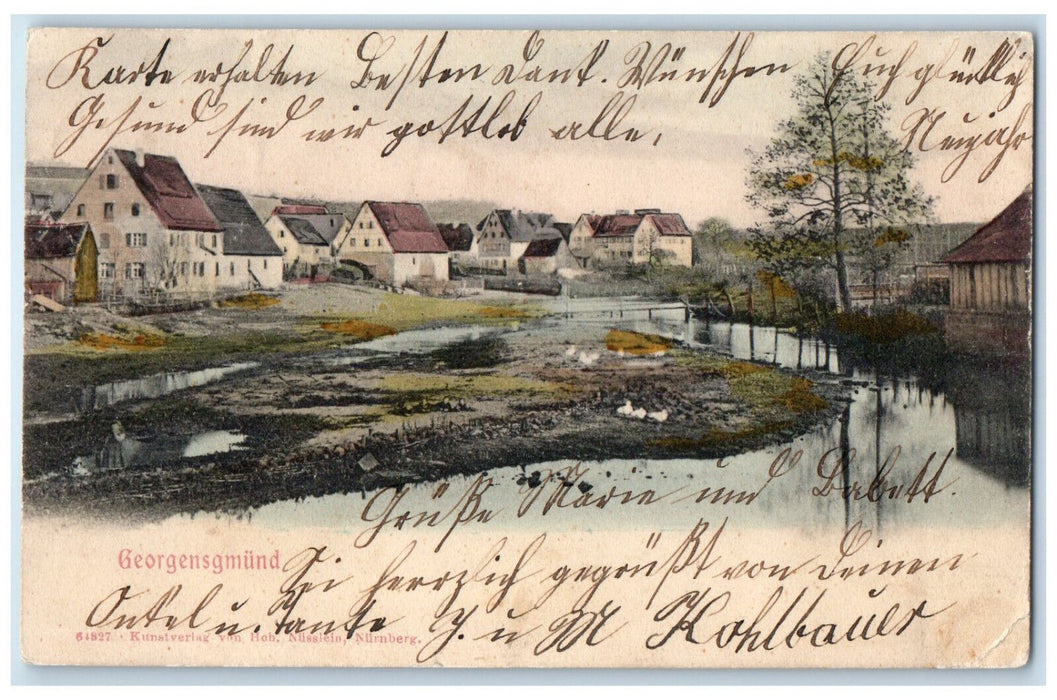 Karte erhalten Besten Dank. Wünschen Euch glücklich
Neujahr
Gesund sind wir gottlob alle,
Grüße Marie und Babett.
Georgensgmünd
Sei herzlich gegrüßt von Deinen
Onkel u. Tante J. u M Kohlbauer
64827 Kunstverlag von Hch. Nüsslein, Nürnberg.